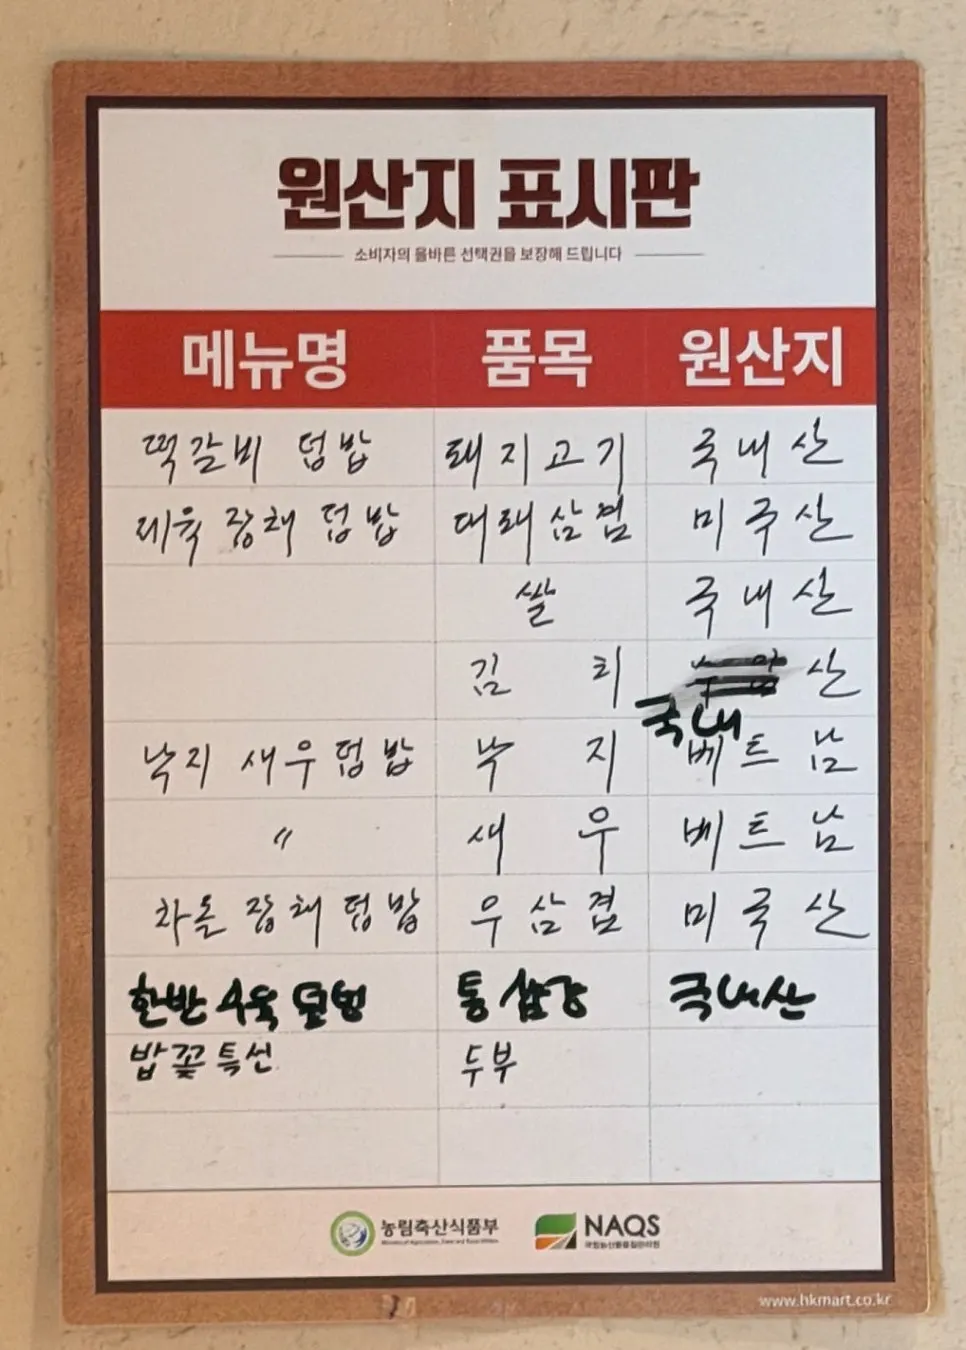 원산지 표시판
소비자의 올바른 선택권을 보장해 드립니다
메뉴명 품목 원산지
떡갈비 덮밥 돼지고기 국내산
제육 잡채 덮밥 대패삼겹 미국산
쌀 국내산
김치 산
국내
낙지 새우덮밥 낙지 베트남
〃 새우 베트남
차돌 잡채 덮밥 우삼겹 미국산
한반 수육 모밥 통삼겹 국내산
밥꽃특선 두부
농림축산식품부
NAQS
국립농산물품질관리원
www.hkmart.co.kr